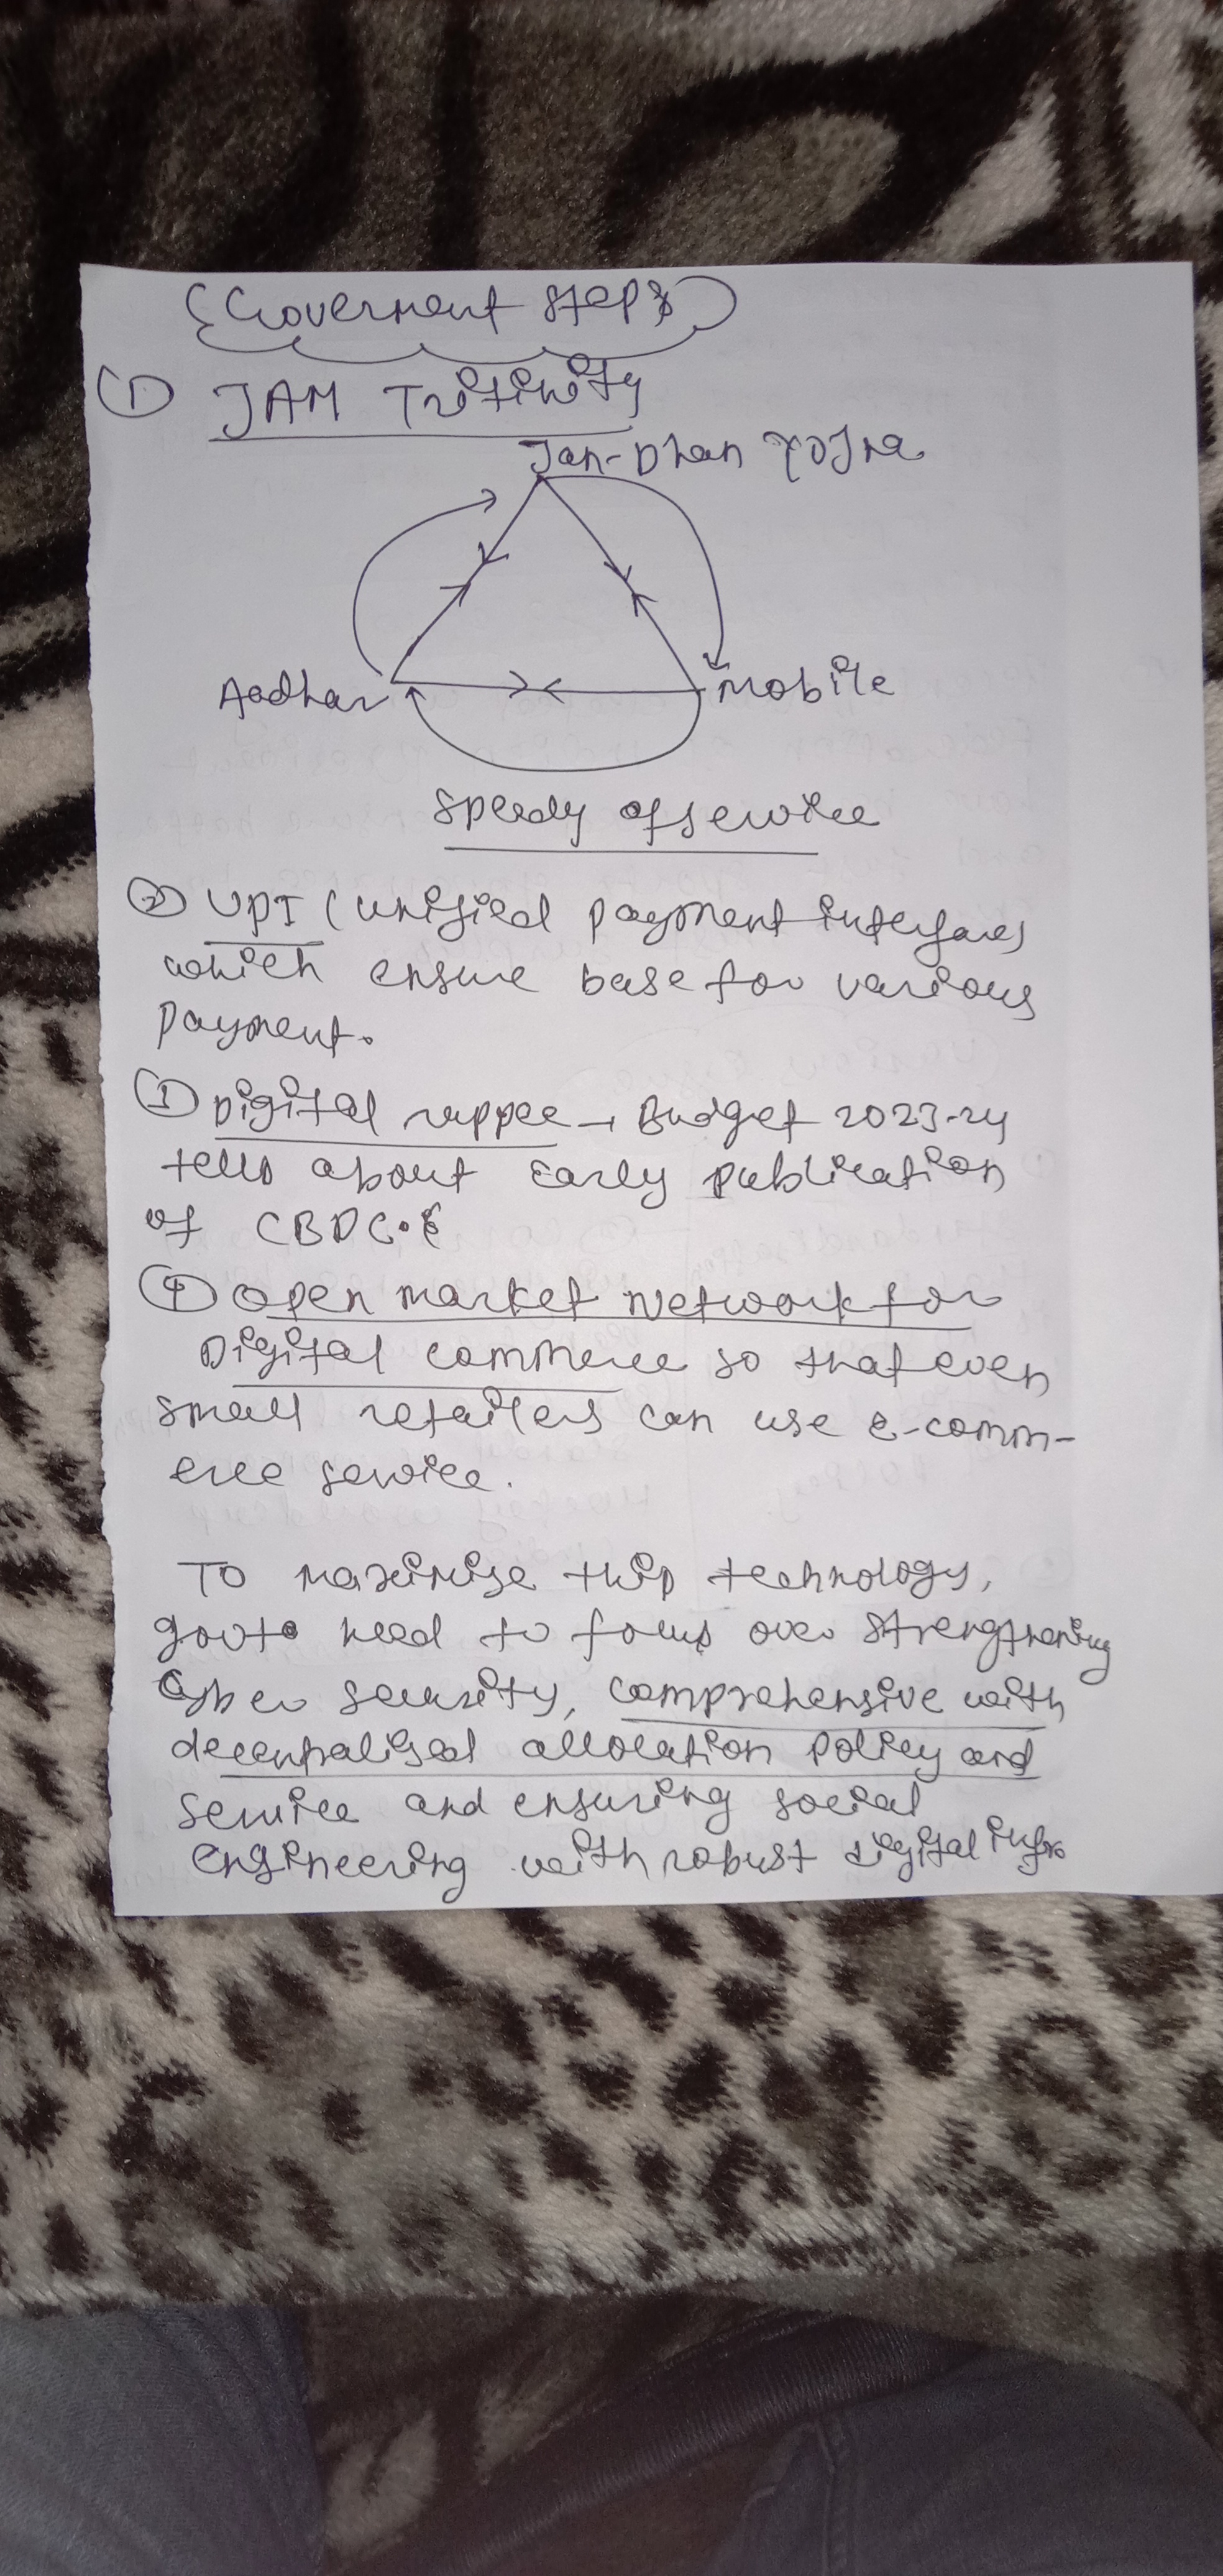 Goverment steps
① JAM Tritinity
Jan-Dhan Yojna
Aadhar
Mobile
Speedy of service
② UPI (unified payment interface)
which ensure base for various
payment.
③ Digital ruppee → Budget 2023-24
tells about early publication
of CBDC.
④ Open market Network for
Digital commerce so that even
small retailers can use e-comm-
erce service.
To maximise this technology,
govt. need to focus over strengthening
Cyber security, comprehensive with
decentralised allocation policy and
service and ensuring social
engineering with robust digital infra